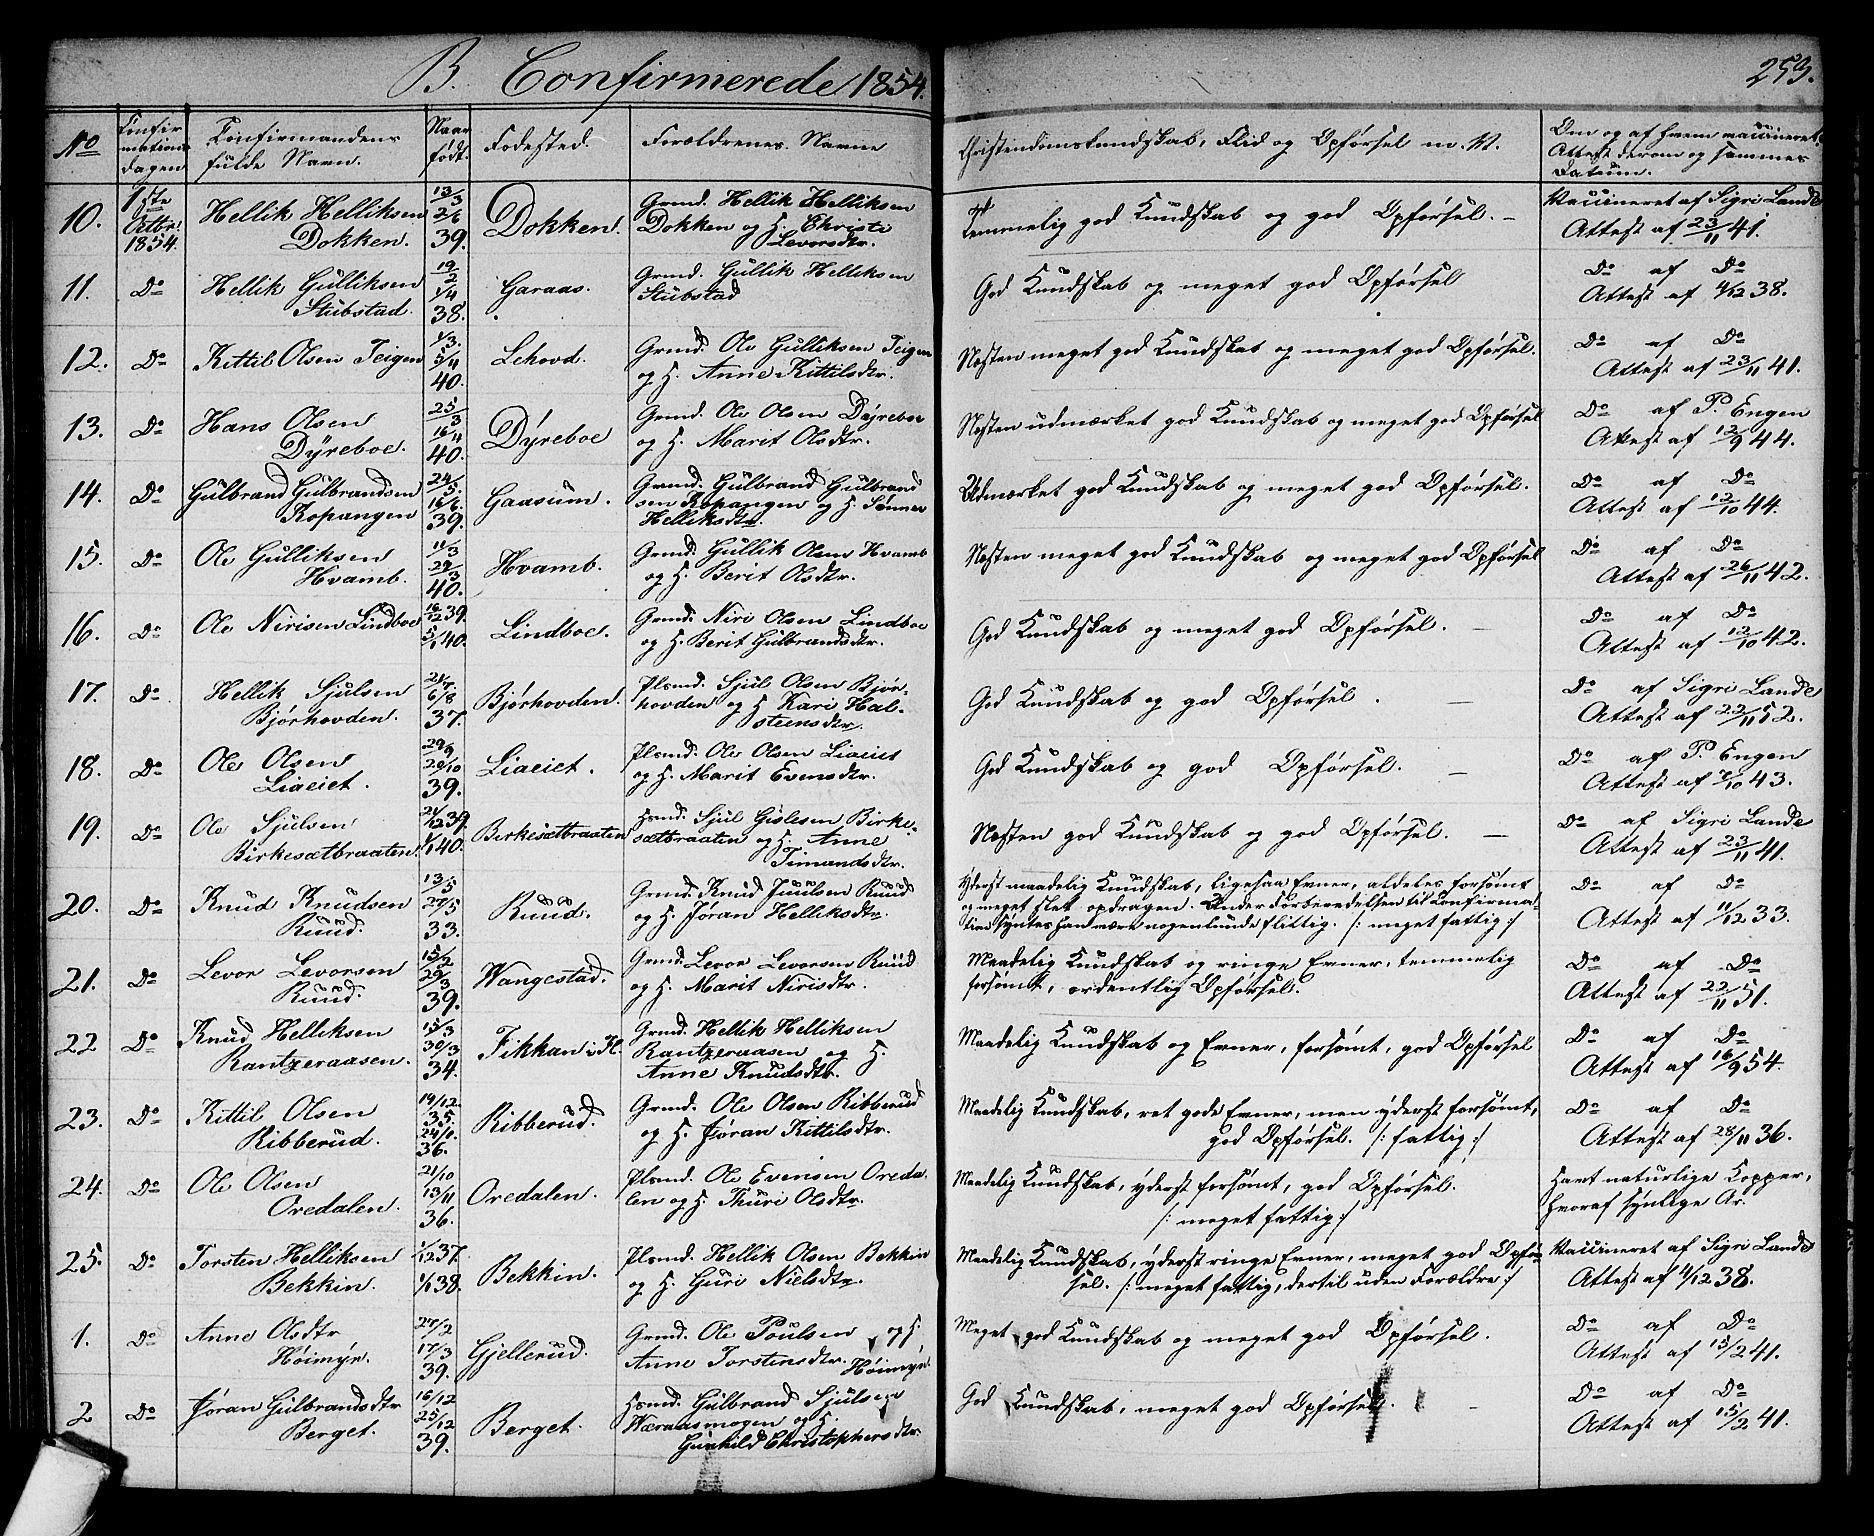 B. Confirmerede 1854.
253.
No
Confirmationsdagen
Confirmandens fulde Navn.
Naar født.
Fødested.
Forældrenes Navne
Christendomskundskab, Flid og Opførsel m. V.
Om og af hvem vaccineret, Attest derom og sammes Datum.
10. 1ste Octbr. 1854. Hellik Helliksen Dokken. 13/3 26 39. Dokken. Grmd. Hellik Helliksen Dokken og H. Christi Levorsdtr. Temmelig god Kundskab og god Opførsel. Vaccineret af Sigri Lande Attest af 23/11 41.
11. Do Hellik Gulliksen Stubstad. 19/2 1/4 38. Garaas. Grmd. Gullik Helliksen Stubstad God Kundskab og meget god Opførsel Do af Do Attest af 4/12 38.
12. Do Kittil Olsen Teigen 1/3. 5/4 40. Lehovd. Grmd. Ole Gulliksen Teigen og H. Anne Kittilsdtr. Næsten meget god Kundskab og meget god Opførsel. Do af Do Attest af 23/11 41.
13. Do Hans Olsen Dyreboe. 25/3 16/4 40. Dyreboe Grmd. Ole Olsen Dyreboe og H. Marit Olsdtr. Næsten udmærket god Kundskab og meget god Opførsel Do af P. Engen Attest af 12/9 44.
14. Do Gulbrand Gulbrandsen Kopangen 24/5. 16/6. 39. Gaasum. Grmd. Gulbrand Gulbrandsen Kopangen og H. Sønnev Helliksdtr. Udmærket god Kundskab og meget god Opførsel. Do af Do Attest af 12/10 44.
15. Do Ole Gulliksen Hvamb. 11/3 29/3 40. Hvamb. Grmd. Gullik Olsen Hvamb og H. Berit Olsdtr. Næsten meget god Kundskab og meget god Opførsel Do af Do Attest af 26/11 42.
16. Do Ole Nirisen Lindboe 16/12 39. 5/1 40. Lindboe. Grmd. Niri Olsen Lindboe og H. Berit Gulbrandsdtr. God Kundskab og meget god Opførsel. Do af Do Attest af 12/10 42.
17. Do Hellik Sjulsen Bjørhovden. 21/7 6/8 37. Bjørhovden. Plsmd. Sjul Olsen Bjørhovden og H Kari Halsteensdtr. God Kundskab og god Opførsel. Do af Sigri Lande Attest af 22/11 52.
18. Do Ole Olsen Liaeiet. 29/9 20/10 39. Liaeiet. Plsmd. Ole Olsen Liaeiet og H. Marit Evensdtr. God Kundskab og god Opførsel. Do af P. Engen Attest af 7/10 43.
19. Do Ole Sjulsen Birkesætbraaten. 21/12 39. 1/1 40. Birkesætbraaten Hsmd. Sjul Gislesen Birkesætbraaten og H. Anne Timandsdtr. Næsten god Kundskab og god Opførsel. Do af Sigri Lande Attest af 23/11 41.
20. Do Knud Knudsen Ruud. 13/5 27/5 33. Ruud. Grmd. Knud Juulsen Ruud og H. Jøran Helliksdtr. Yderst maadelig Kundskab, ligesaa Evner, aldeles forsømt og meget slet opdragen. Under Forberedelsen til Confirmation syntes han være nogenlunde flittig. /: meget fattig :/ Do af Do Attest af 11/12 33.
21. Do Levor Levorsen Ruud. 15/2 29/3 39. Wangestad. Grmd. Levor Levorsen Ruud og H. Marit Nirisdtr. Maadelig Kundskab og ringe Evner, temmelig forsømt, ordentlig Opførsel. Do af Do Attest af 22/11 51.
22 Do Knud Helliksen Rantzeraasen. 15/3 30/3 34. Fikkan i Fl. Grmd. Hellik Helliksen Rantzeraasen og H. Anne Knudsdtr. Maadelig Kundskab og Evner, forsømt, god Opførsel Do af Do Attest af 16/9 54.
23. Do Kittil Olsen Ribberud. 19/12. 35. 24/1. 36. Ribberud. Grmd. Ole Olsen Ribberud og H. Jøran Kittilsdtr. Maadelig Kundskab, ret gode Evner, men yderst forsømt, god Opførsel. /: fattig :/ Do af Do Attest af 28/11 36.
24. Do Ole Olsen Oredalen. 21/10 13/11 36. Oredalen. Plsmd. Ole Evensen Oredalen og H. Thuri Olsdtr. Maadelig Kundskab, yderst forsømt, god Opførsel. /: meget fattig :/ Havt naturlige Kopper, hvoraf synlige Ar.
25. Do Torsten Helliksen Bekkin. 1/12 37. 1/1 38. Bekkin. Plsmd. Hellik Olsen Bekkin og H. Guri Nielsdtr. Maadelig Kundskab, yderst ringe Evner, meget god Opførsel. /: meget fattig, dertil uden Forældre :/ Vaccineret af Sigri Lande Attest af 4/12 38.
1. Do Anne Olsdtr Høimyr. 27/2 17/3 39. Gjellerud. Grmd. Ole Poulsen og H. Anne Torstensdtr. Høimyr. Meget god Kundskab og meget god Opførsel. Do af Do Attest af 15/2 41.
2 Do Jøran Gulbrandsdtr Berget. 16/12 25/12 39. Berget. Hsmd. Gulbrand Sjulsen Wæraasmogen og H. Gunhild Christophersdtr. God Kundskab, meget god Opførsel. Do af Do Attest af 15/2 41.